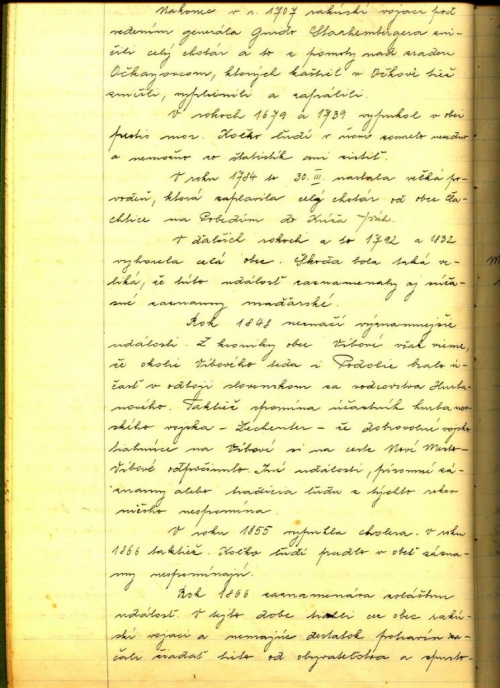 Nakonec v r. 1707 rakúski vojaci pod
vedením generála Guido Starhembergera zni-
čili celý chotár a to z pomsty nad zradou
Očkayovcom, ktorých kaštieľ v Očkove tiež
zničili, vyplienili a zapálili.
V rokoch 1679 a 1739 vypukol v obci
mor. Koľko ľudí v ňom zomrelo
a nemožno zo štatistík ani zistiť.
V roku 1784 to 30. III. nastala veľká po-
vodeň, ktorá zaplavila celý chotár od obce Ča-
chtice na Pobedim do
V ďalších rokoch a to 1792 a 1832
vyhorela celá obec. Škoda bola taká ve-
liká, že túto udalosť zaznamenaly aj súča-
sné záznamy maďarské.
Rok 1848 neznačí významnejšie
udalosti. Z kroniky obce Vrbové však vieme,
že okolie Vrbového teda i Podolie bralo ú-
časť v odboji slovenskom za vodcovstva Hurba-
nového. Taktiež spomína účastník hurbanov-
ského vojska - Zechenter - že dobrovoľné vojsko
tiahnúce na Vrbové si na ceste Nové Mesto-
Vrbové odpočinulo. Iné udalosti, písomné zá-
znamy alebo tradícia ľudu z týchto rokov
ničoho nespomína.
V roku 1855 vypukla cholera. V roku
1866 taktiež. Koľko ľudí padlo v obeť zázna-
my nespomínajú.
Rok 1866 zaznamenáva zvláštnu
udalosť. V tejto dobe tiahli cez obec rakú-
ski vojaci a nemajúc dostatok potravín za-
čali žiadať tieto od obyvateľstva a